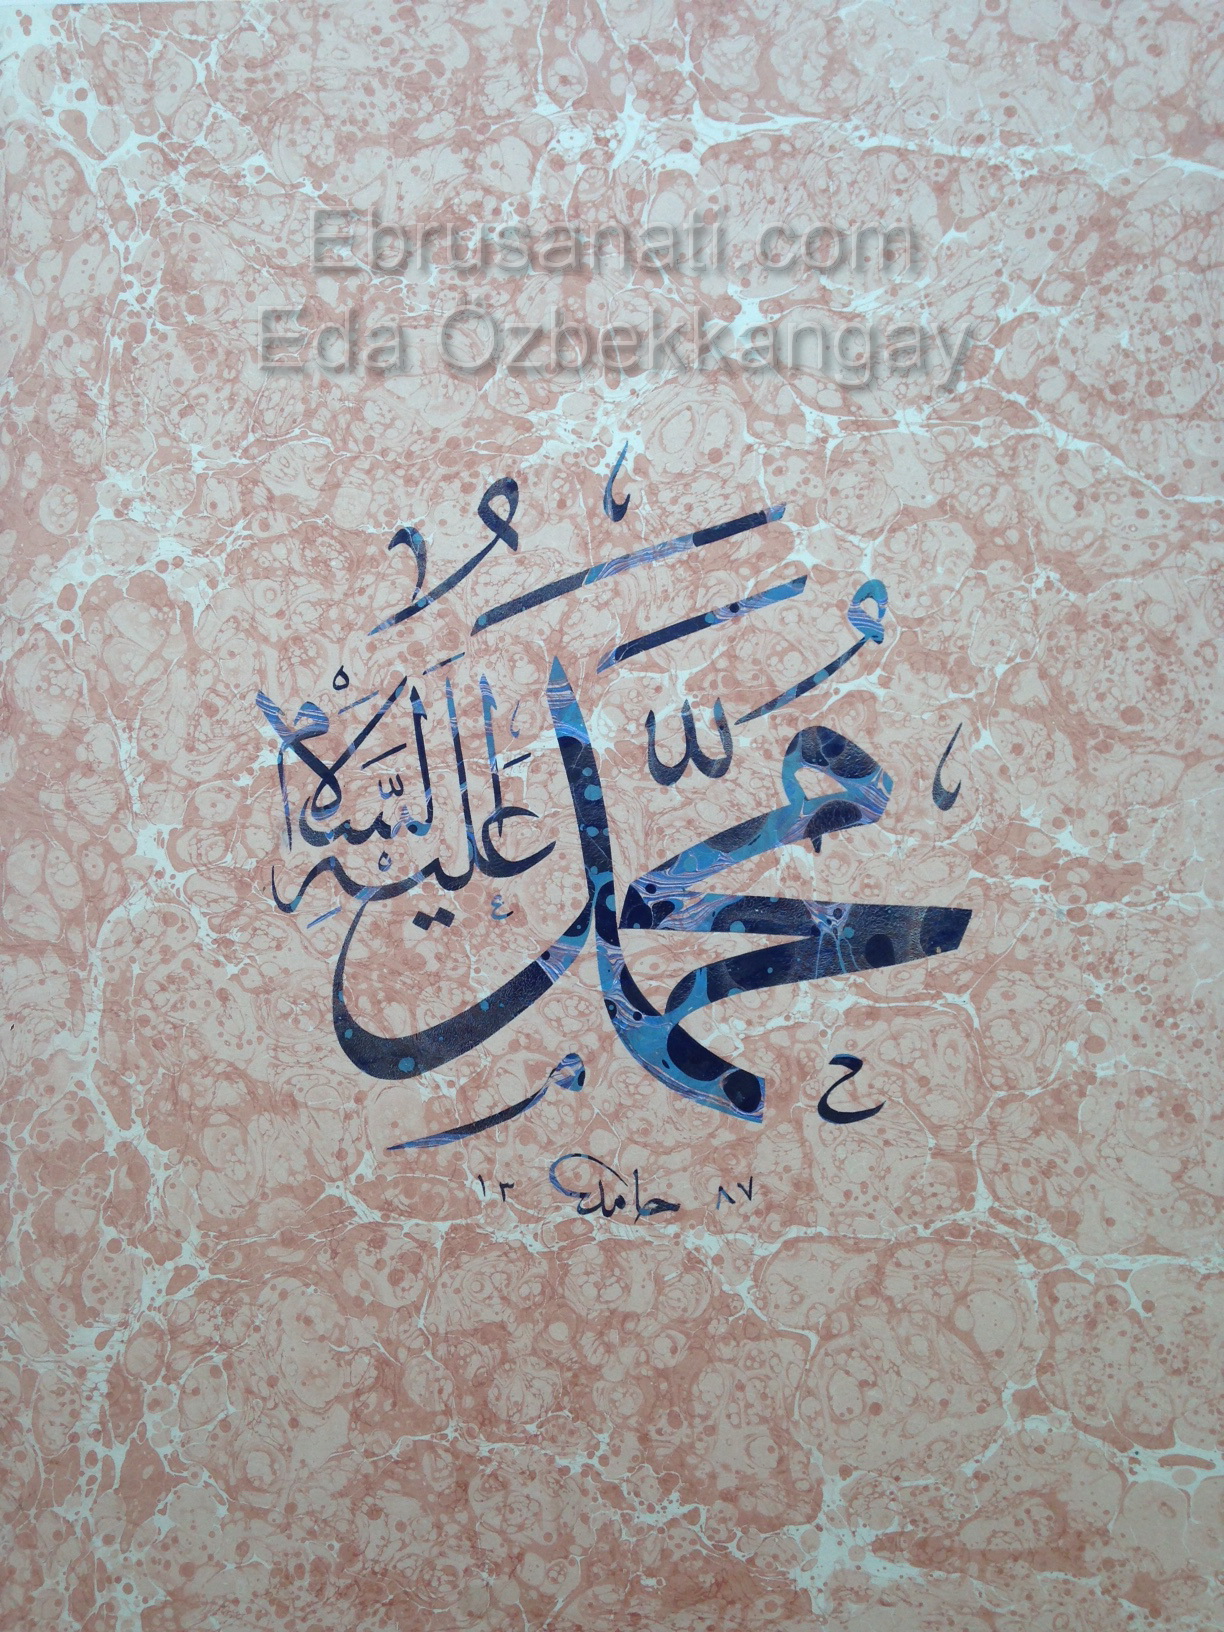 Ebrusanati.com
Eda Özbekkangay
محمد عليه السلام
١٣ حامد ٨٧